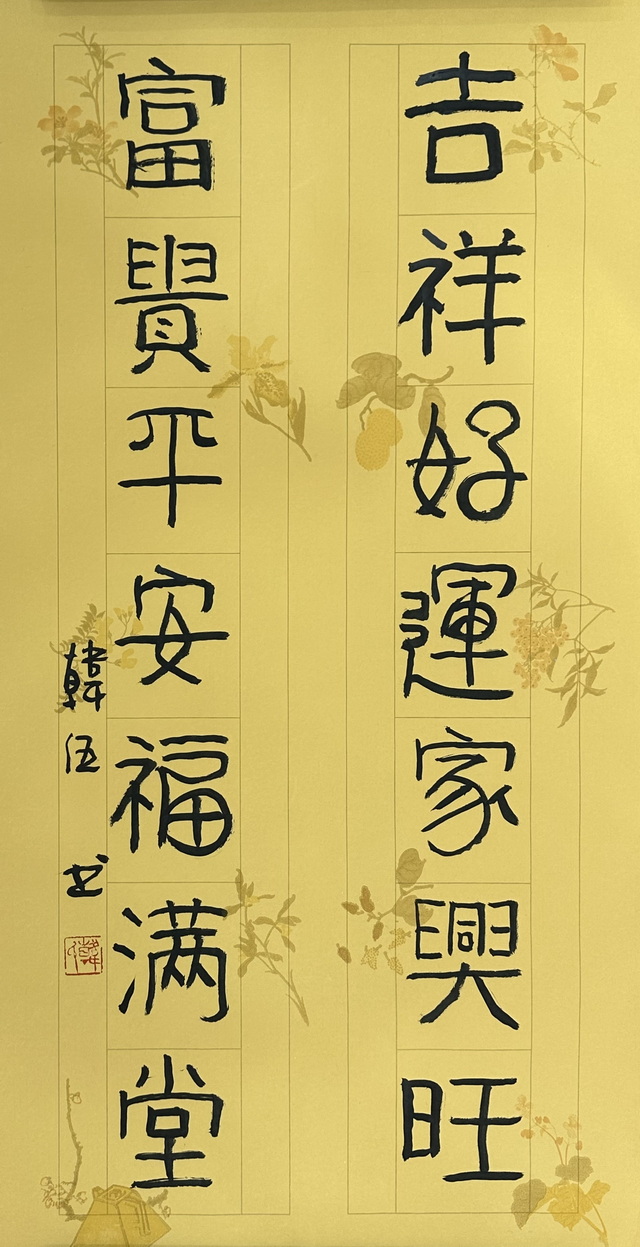 吉祥好運家興旺
富貴平安福满堂
韓伍书